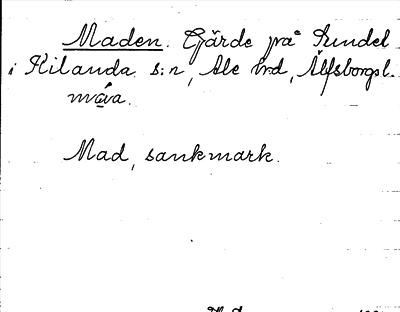 Maden. Gärde på Sundel
i Kilanda s:n, Ale hrd, Älfsborgsl.
måa.
Mad, sankmark.